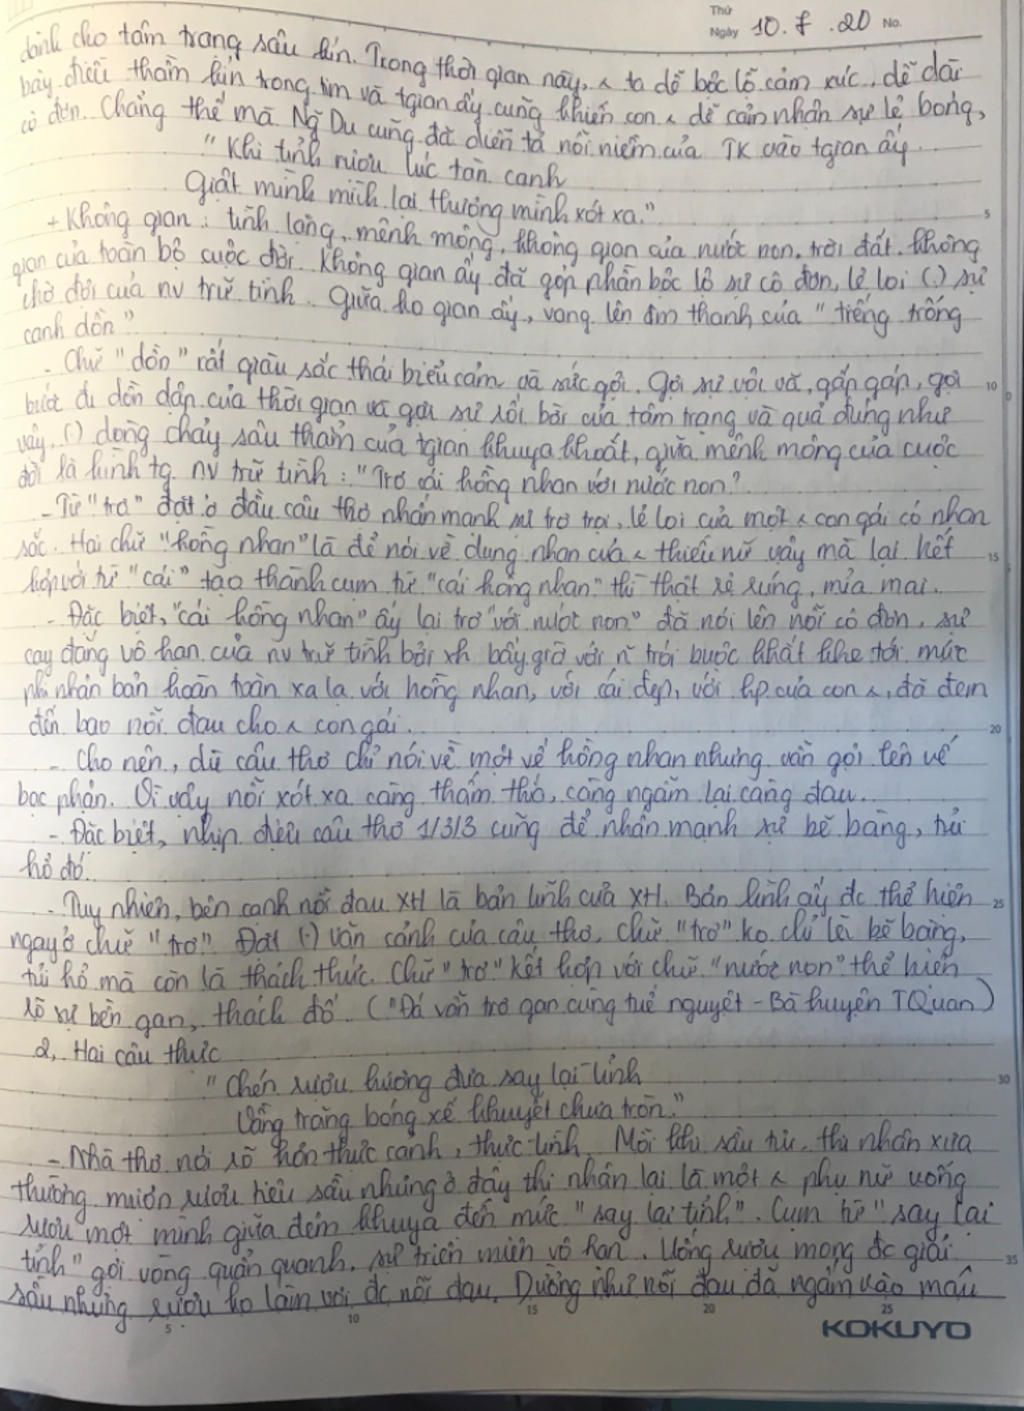 Thứ
Ngày 10. 8 . 20 No.
dành cho tâm trạng sâu kín. Trong thời gian này, ^ ta dễ bộc lộ cảm xúc, dễ dãi
bày điều thầm kín trong tim và tgian ấy cũng khiến con ^ dễ cảm nhận sự lẻ bóng,
cô đơn. Chẳng thế mà Ng Du cũng đã diễn tả nỗi niềm của TK vào tgian ấy
"Khi tỉnh rượu lúc tàn canh
Giật mình mình lại thương mình xót xa."
+ Không gian: tĩnh lặng, mênh mông, không gian của nước non, trời đất, không
gian của toàn bộ cuộc đời. Không gian ấy đã góp phần bộc lộ sự cô đơn, lẻ loi (.) sự
chờ đợi của nv trữ tình. Giữa ko gian ấy, vang lên âm thanh của "tiếng trống
canh dồn"
- Chữ "dồn" rất giàu sắc thái biểu cảm và sức gợi. Gợi sự vội vã, gấp gáp, gợi
bước đi dồn dập của thời gian và gợi sự rối bời của tâm trạng và quả đúng như
vậy, (.) dòng chảy sâu thẳm của tgian khuya khoắt, giữa mênh mông của cuộc
đời là hình tg nv trữ tình: "Trơ cái hồng nhan với nước non".
- Từ "trơ" đặt ở đầu câu thơ nhấn mạnh sự trơ trọi, lẻ loi của một ^ con gái có nhan
sắc. Hai chữ "hồng nhan" là để nói về dung nhan của ^ thiếu nữ vậy mà lại kết
hợp với từ "cái" tạo thành cụm từ "cái hồng nhan" thì thật rẻ rúng, mỉa mai.
- Đặc biệt, "cái hồng nhan" ấy lại trơ "với nước non" đã nói lên nỗi cô đơn, sự
cay đắng vô hạn của nv trữ tình bởi xh bấy giờ với n~ trói buộc khắt khe tới mức
phi nhân bản hoàn toàn xa lạ với hồng nhan, với cái đẹp, với hp của con ^, đã đem
đến bao nỗi đau cho ^ con gái.
- Cho nên, dù câu thơ chỉ nói về một vế hồng nhan nhưng vẫn gợi lên vế
bạc phận. Vì vậy nỗi xót xa càng thấm thía, càng ngẫm lại càng đau.
- Đặc biệt, nhịp điệu câu thơ 1/3/3 cũng để nhấn mạnh sự bẽ bàng, tủi
hổ đó.
- Tuy nhiên, bên cạnh nỗi đau XH là bản lĩnh của XH. Bản lĩnh ấy đc thể hiện
ngay ở chữ "trơ". Đặt (.) văn cảnh của câu thơ, chữ "trơ" ko chỉ là bẽ bàng,
tủi hổ mà còn là thách thức. Chữ "trơ" kết hợp với chữ "nước non" thể hiện
rõ sự bền gan, thách đố. ("Đá vẫn trơ gan cùng tuế nguyệt - Bà huyện TQuan)
2, Hai câu thực
"Chén rượu hương đưa say lại tỉnh
Vầng trăng bóng xế khuyết chưa tròn."
- Nhà thơ nói rõ hơn thực cảnh, thực tình. Mỗi khi sầu tủi, thi nhân xưa
thường mượn rượu tiêu sầu nhưng ở đây thi nhân lại là một ^ phụ nữ uống
rượu một mình giữa đêm khuya đến mức "say lại tỉnh". Cụm từ "say lại
tỉnh" gợi vòng quẩn quanh, sự triền miên vô hạn. Uống rượu mong đc giải
sầu nhưng rượu ko làm vơi đc nỗi đau. Dường như nỗi đau đã ngấm vào máu
KOKUYO